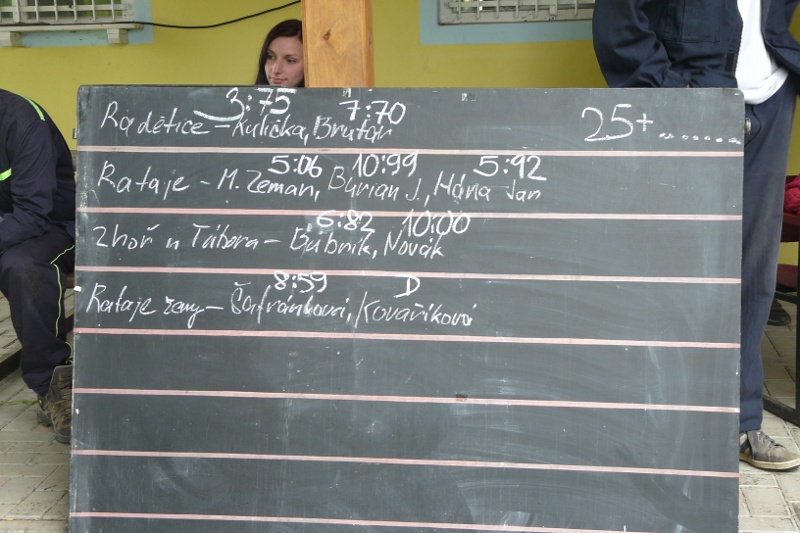 3:75 7:70
Radětice - Kulička, Brutar 25+ .......
5:06 10:99 5:92
Rataje - M. Zeman, Burian J., Hána Jan
6:82 10:00
Zhoř u Tábora - Bubník, Novák
8:59 D
Rataje ženy - Šafránková, Kovaříková